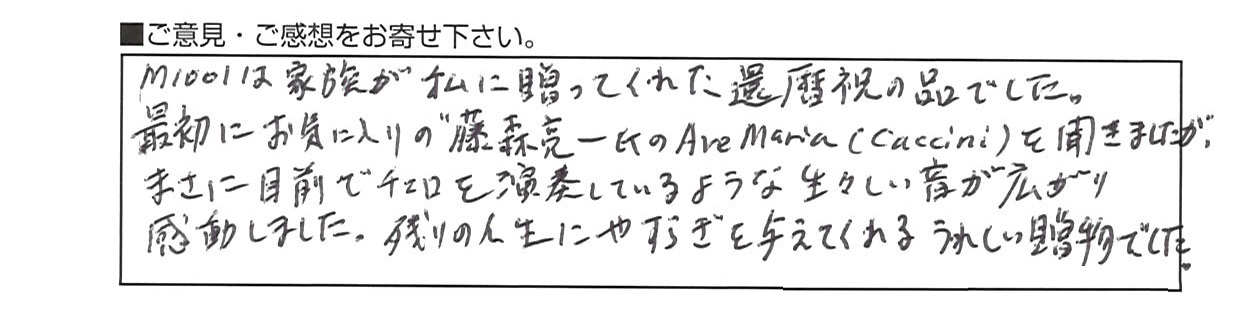 ■ご意見・ご感想をお寄せ下さい。
M1001は家族が私に贈ってくれた還暦祝の品でした。
最初にお気に入りの"藤森亮一氏のAve Maria(Caccini)を聞きましたが、
まさに目前でチェロを演奏しているような生々しい音が広がり
感動しました。残りの人生にやすらぎを与えてくれるうれしい贈物でした。